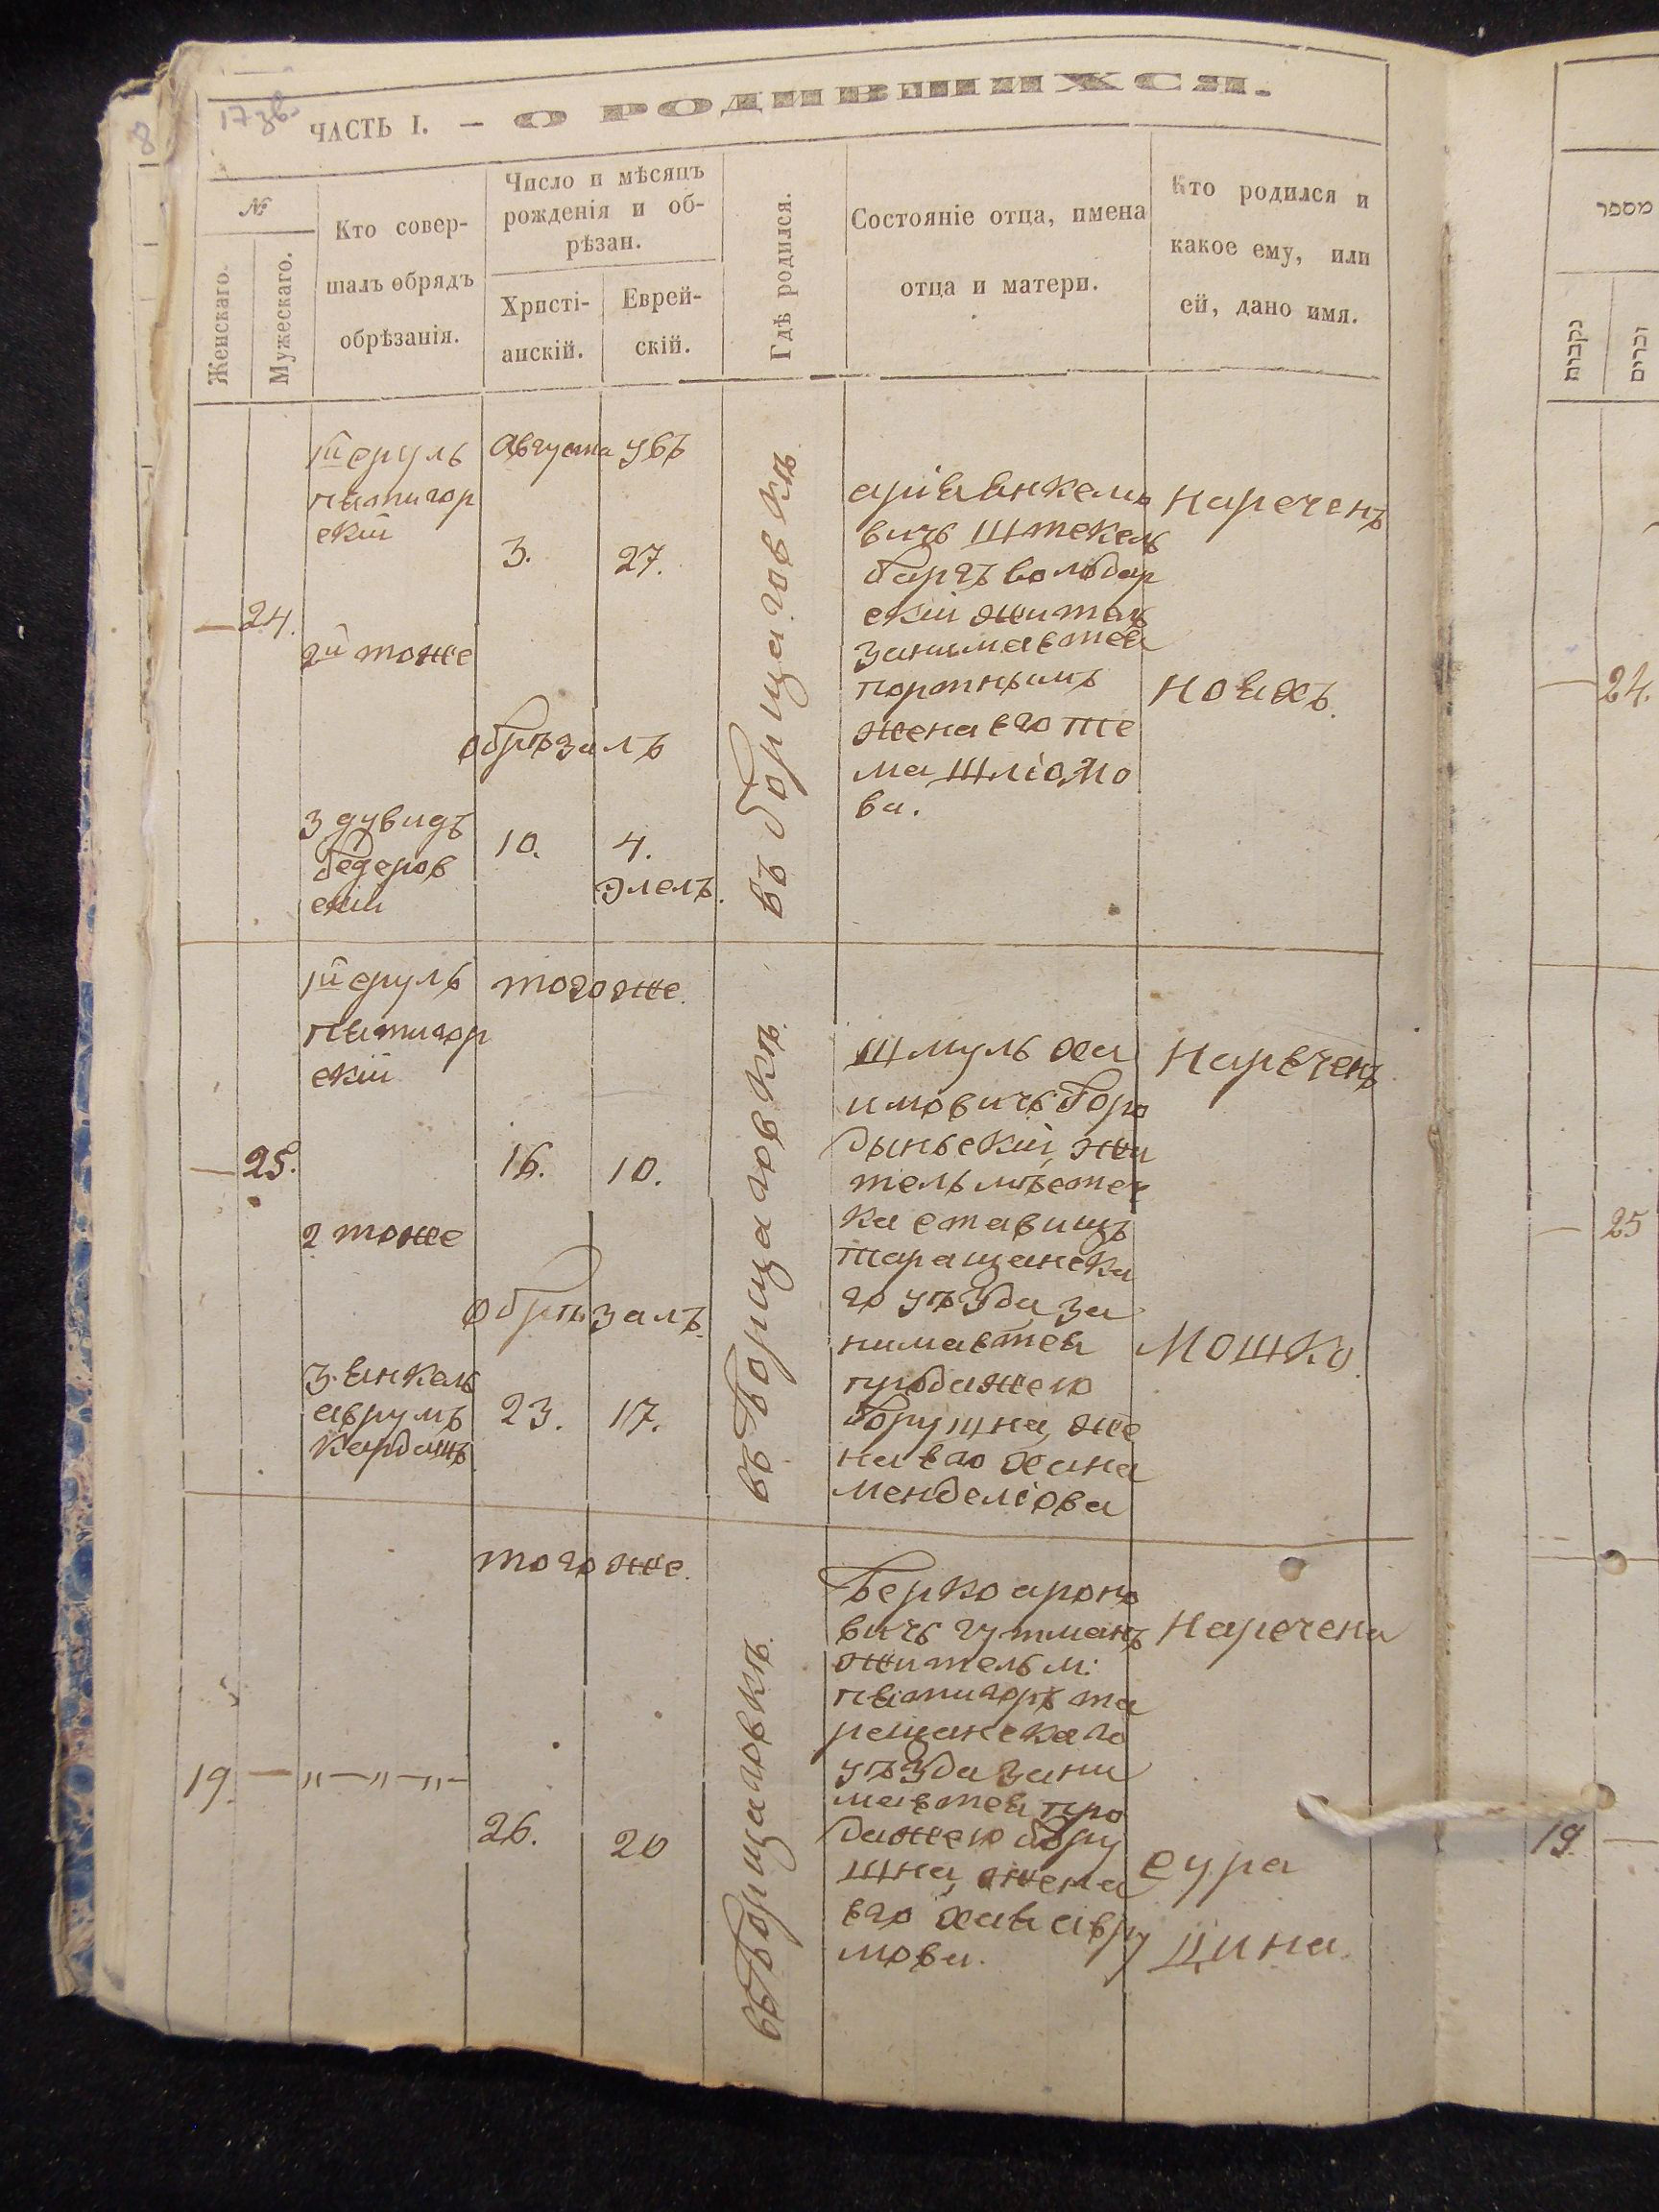 8
17 зв.
ЧАСТЬ I. — О РОДИВШИХСЯ.
№
Женскаго.
Мужескаго.
Кто совер-
шалъ обрядъ
обрѣзанія.
Число и мѣсяцъ
рожденія и об-
рѣзан.
Христі-
анскій.
Еврей-
скій.
Гдѣ родился.
Состояніе отца, имена
отца и матери.
Кто родился и
какое ему, или
ей, дано имя.
— 24.
1й сруль
пятигор
скій
2й тоже
3 дувидъ
бедеров
скій
Августа
3.
27.
обрѣзалъ
10.
4.
элелъ.
въ борщаговкѣ
аріь янкело
вичъ Штекель
баргъ володар
скій житель
занимается
портнымъ
жена его те
ма шліомо
ва.
нареченъ
ноихъ.
— 25.
1й сруль
пятигор
скій
2 тоже
3. янкель
аврумъ
Кардашъ
тогоже.
16.
10.
обрѣзалъ
23.
17.
въ Борщаговкѣ.
Шмуль ха
имовичъ боро
дынскій, жи
тель мѣстеч
ка ставищъ
таращанска
го уѣзда за
нимается
продажею
борушна, же
на его хана
менделіова
нареченъ
Мошко.
19. — „—„—„—
тогоже.
26.
20
въ Борщаговкѣ.
Берко ароно
вичъ гутманъ
житель м:
пятигоръ та
ращанскаго
уѣзда зани
мается про
дажею бору
шна, жена
его хая авру
мова.
наречена
сура
Цина.
מספר
נקבות
זכרים
— 24.
— 25
19. —